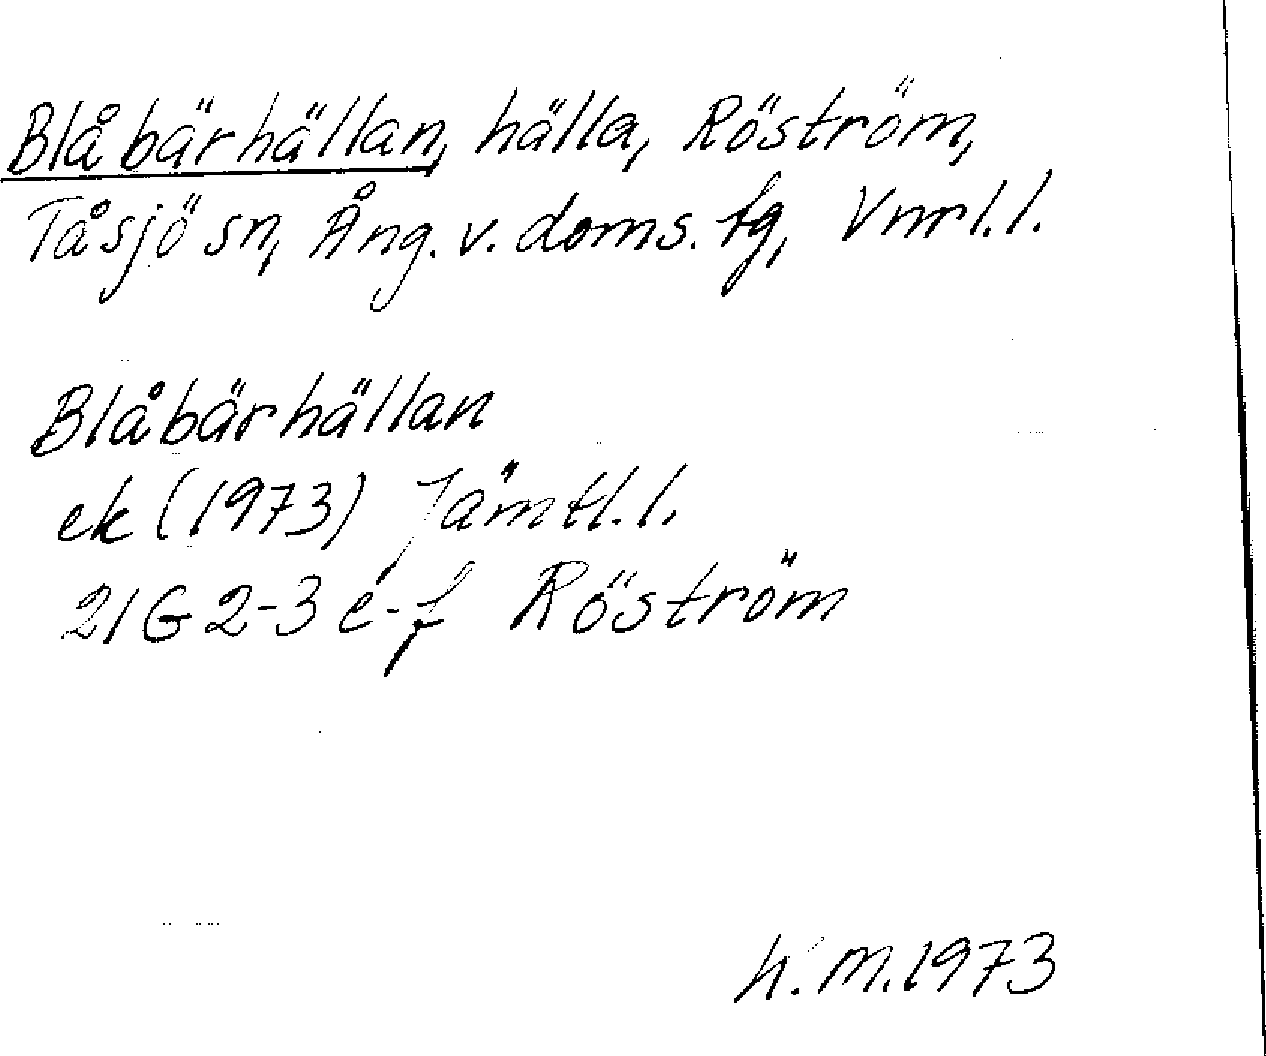 Blåbärhällan, hälla, Röström,
Tåsjö sn, Ång. v. doms. fg, Vnrl. l.
Blåbärhällan
ek (1973) Jämtl. l.
21G 2-3 e-f Röström
h. m. 1973